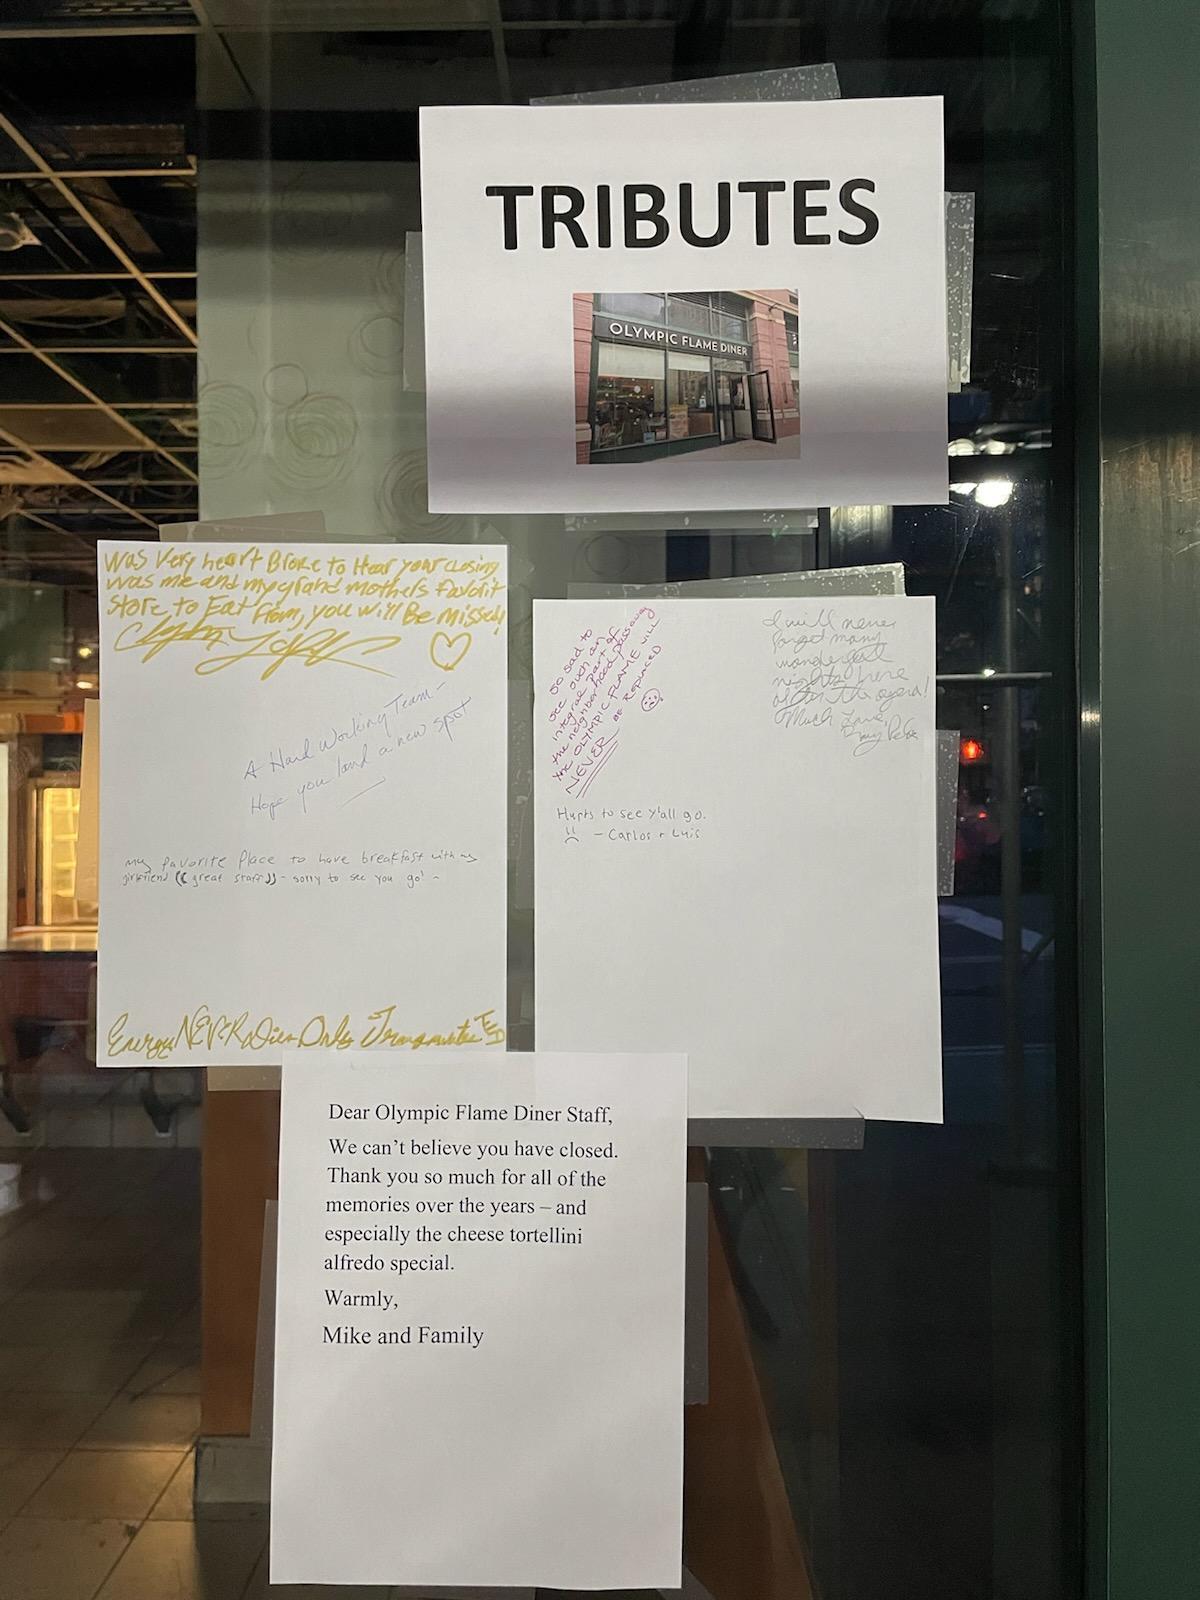 TRIBUTES
OLYMPIC FLAME DINER
Was Very heart Broke to Hear your closing
was me and my grand mothers Favorit
Store to Eat from, you will Be missed!
A Hard Working Team -
Hope you land a new spot
my favorite Place to have breakfast with my
girlfriend ((great staff)) - sorry to see you go! ~
Energy NEVER Dies Only
So sad to
see such an
integral part of
the neighborhood pass away
The OLYMPIC FLAME WILL
NEVER BE REPLACED
I will never
forget many
wonderful
nights here
after the opera!
Much Love,
Hurts to see y'all go.
- Carlos + Luis
Dear Olympic Flame Diner Staff,
We can't believe you have closed.
Thank you so much for all of the
memories over the years – and
especially the cheese tortellini
alfredo special.
Warmly,
Mike and Family